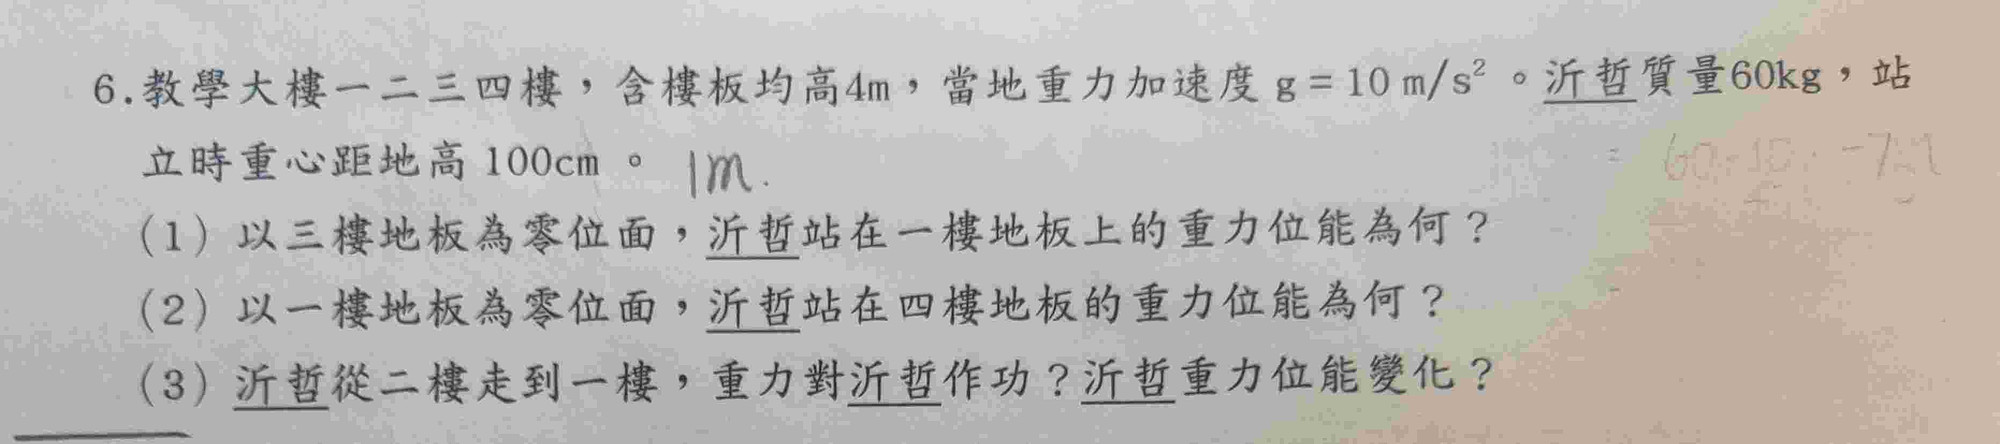 6.教學大樓一二三四樓，含樓板均高4m，當地重力加速度 g = 10 m/s²。沂哲質量60kg，站
立時重心距地高 100cm。 1m.
(1) 以三樓地板為零位面，沂哲站在一樓地板上的重力位能為何？
(2) 以一樓地板為零位面，沂哲站在四樓地板的重力位能為何？
(3) 沂哲從二樓走到一樓，重力對沂哲作功？沂哲重力位能變化？